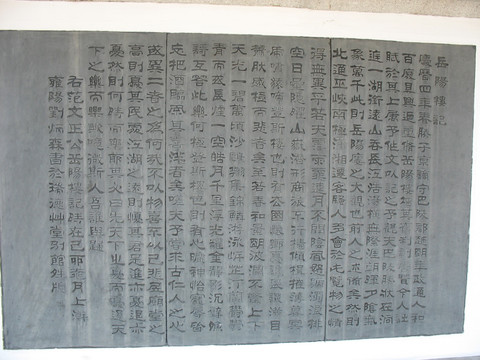 岳陽樓記
慶曆四年春滕子京謫守巴陵郡越明年政通人和
百廢具興迺重修岳陽樓增其舊制刻唐賢今人詩
賦於其上屬予作文以記之予觀夫巴陵勝狀在洞
庭一湖銜遠山吞長江浩浩湯湯橫無際涯朝暉夕陰氣
象萬千此則岳陽樓之大觀也前人之述備矣然則
北通巫峽南極瀟湘遷客騷人多會於此覽物之情
得無異乎若夫霪雨霏霏連月不開陰風怒號濁浪排
空日星隱曜山岳潛形商旅不行檣傾楫摧薄暮冥冥
虎嘯猿啼登斯樓也則有去國懷鄉憂讒畏譏滿目
蕭然感極而悲者矣至若春和景明波瀾不驚上下
天光一碧萬頃沙鷗翔集錦鱗游泳岸芷汀蘭郁郁
青青而或長煙一空皓月千里浮光躍金靜影沉璧漁
歌互答此樂何極登斯樓也則有心曠神怡寵辱皆
忘把酒臨風其喜洋洋者矣嗟夫予嘗求古仁人之心
或異二者之為何哉不以物喜不以己悲居廟堂之
高則憂其民處江湖之遠則憂其君是進亦憂退亦
憂然則何時而樂耶其必曰先天下之憂而憂後天
下之樂而樂歟噫微斯人吾誰與歸
右范文正公岳陽樓記時在己卯 月上澣
雍陽劉炳森書於 艸堂